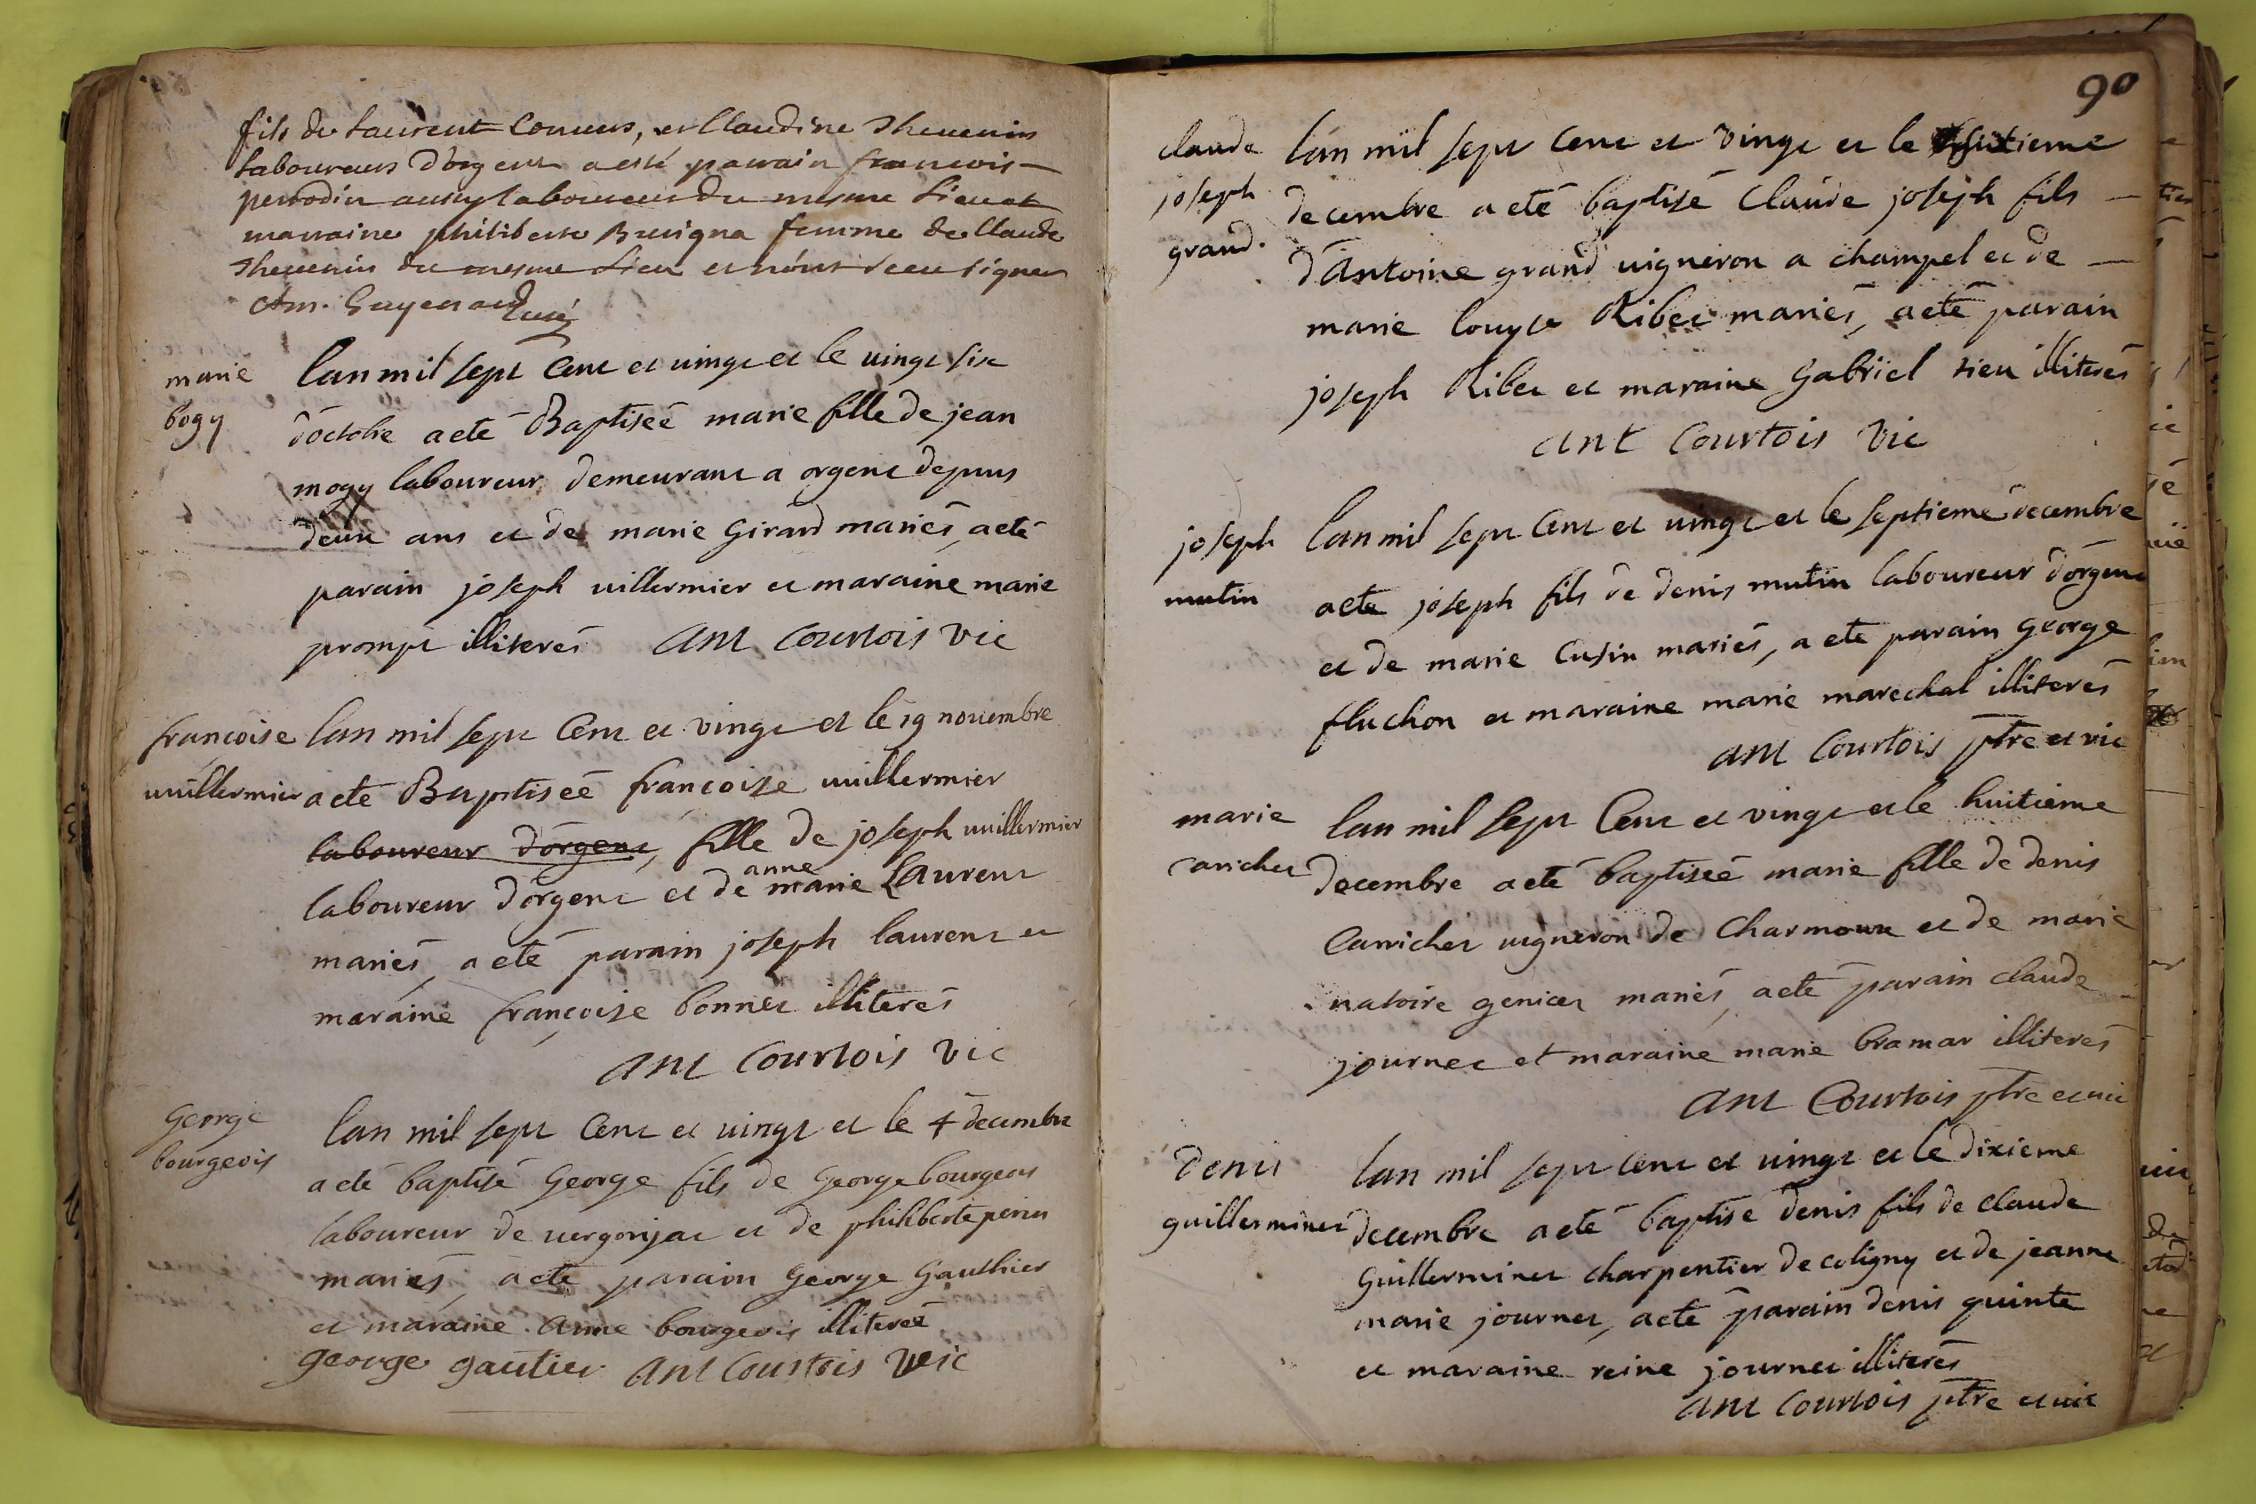 fils de Laurent Convers, et Claudine Thevenin
laboureurs d'orgent a esté parrain francois
perrodin aussy laboureur du mesme Lieu et
marraine philiberte Buvigna femme de Claude
Thevenin du mesme Lieu et n'ont sceu signer
Am. Guyenard Curé
marie
bogy
lan mil sept Cent et uingt et le uingt six
d'octobre a eté Baptiseé marie fille de jean
mogy laboureur demeurant a orgent depuis
deux ans et de marie Girard mariés, a eté
parain joseph uillermier et maraine marie
prompt illiterés Ant Courtois Vic
francoise
uuillermier
lan mil sept Cent et vingt et le 19 nouembre
a eté Baptiseé francoise uuillermier
laboureur d'orgent, fille de joseph uuillermier
laboureur d'orgent et de marie anne Laurent
mariés, a eté parain joseph laurent et
maraine françoise bonnet illiterés
Ant Courtois Vic
George
bourgeois
lan mil sept Cent et uingt et le 4 decembre
a eté baptisé George fils de George bourgeois
laboureur de uergonjat et de philiberte perin
mariés, a eté parain George Gauthier
et maraine Anne bourgeois illitereé
george gautier Ant Courtois Vic
90
claude
joseph
grand.
lan mil sept Cent et vingt et le sixtieme
decembre a eté baptisé Claude joseph fils
d'Antoine grand uigneron a champel et de
marie louyse Ribet mariés, a eté parain
joseph Ribet et maraine Gabriel rieu illiterés
Ant Courtois Vic
joseph
mutin
lan mil sept Cent et uingt et le septieme decembre
a eté joseph fils de denis mutin laboureur d'orgent
et de marie Cusin mariés, a eté parain George
fluchon et maraine marie marechal illiterés
Ant Courtois ptre et vic
marie
carichet
lan mil sept Cent et vingt et le huitieme
decembre a eté baptiseé marie fille de denis
Carrichet uigneron de Charmoux et de marie
natoire genicet mariés, a eté parain claude
journet et maraine marie bramar illiterés
Ant Courtois ptre et vic
denis
guillerminet
lan mil sept cent et uingt et le dixieme
decembre a eté baptisé denis fils de claude
Guillerminet charpentier de coligny et de jeanne
marie journet, a eté parain denis quinte
et maraine reine journet illiterés
Ant Courtois ptre et vic